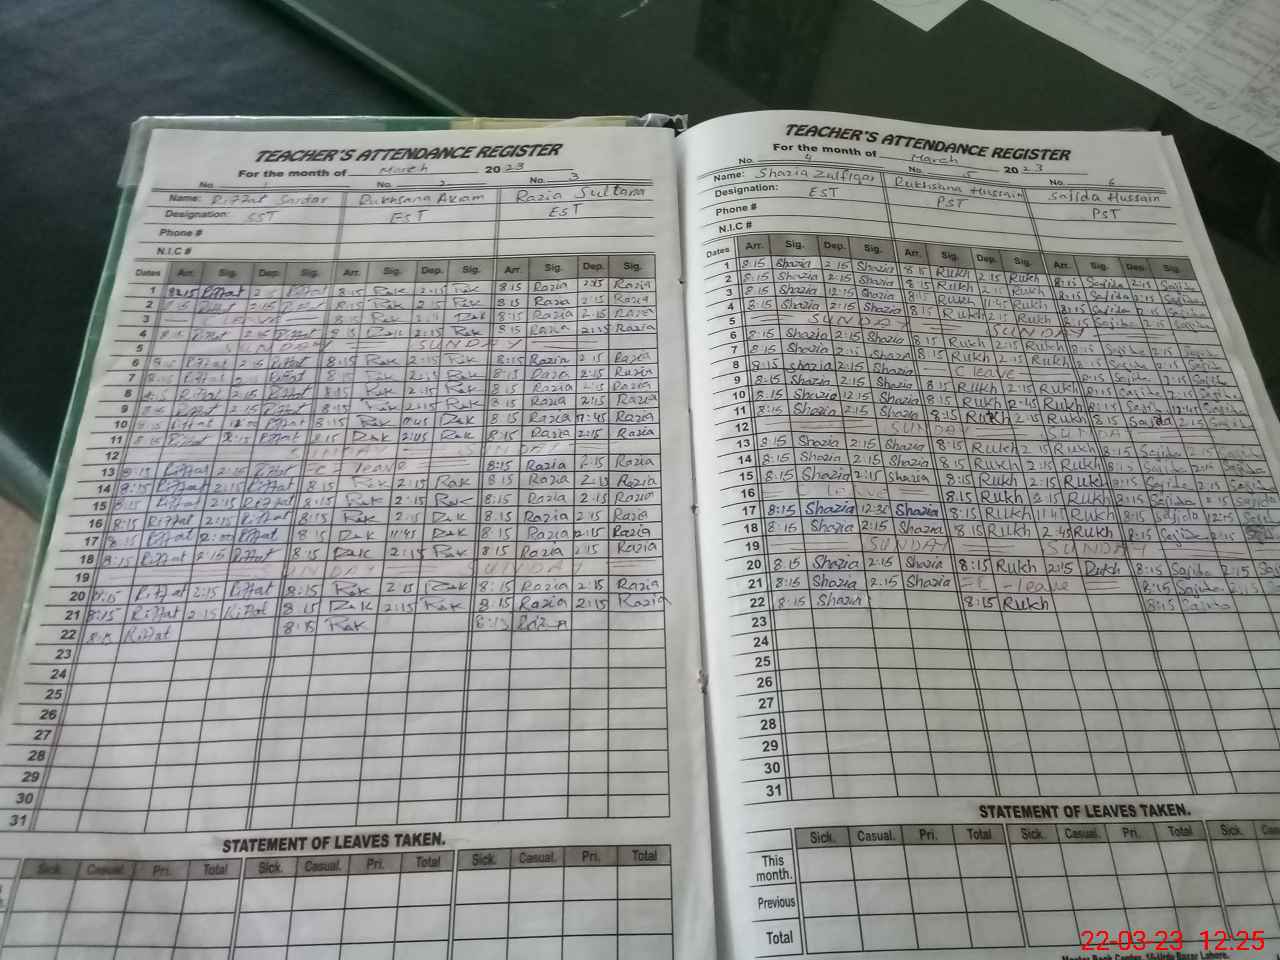 TEACHER'S ATTENDANCE REGISTER
For the month of March 2023
No. 1 No. 2 No. 3
Name: Riffat Sardar Rukhsana Akram Razia Sultana
Designation: SST EST EST
Phone #
N.I.C #
Dates Arr. Sig. Dep. Sig. Arr. Sig. Dep. Sig. Arr. Sig. Dep. Sig.
1 8:15 Riffat Riffat 8:15 Rak 2:15 Rak 8:15 Razia 2:15 Razia
2 8:15 Riffat 2:15 Riffat 8:15 Rak 2:15 Rak 8:15 Razia 2:15 Razia
3 8:15 Rak Rak 8:15 Razia 2:15 Razia
4 8:15 Riffat 2:15 Riffat 8:15 Rak 2:15 Rak 8:15 Razia 2:15 Razia
5 SUNDAY SUNDAY
6 8:15 Riffat 2:15 Riffat 8:15 Rak 2:15 Rak 8:15 Razia 2:15 Razia
7 8:15 Riffat 2:15 Riffat 8:15 Rak 2:15 Rak 8:15 Razia 2:15 Razia
8 8:15 Riffat 2:15 Riffat 8:15 Rak 2:15 Rak 8:15 Razia 2:15 Razia
9 8:15 Riffat 2:15 Riffat 8:15 Rak 2:15 Rak 8:15 Razia 2:15 Razia
10 8:15 Riffat Riffat 8:15 Rak 11:45 Rak 8:15 Razia 11:45 Razia
11 8:15 Riffat 2:15 Riffat 8:15 Rak 2:45 Rak 8:15 Razia 2:15 Razia
12 SUNDAY SUNDAY
13 8:15 Riffat 2:15 Riffat C leave 8:15 Razia 2:15 Razia
14 8:15 Riffat 2:15 Riffat 8:15 Rak 2:15 Rak 8:15 Razia 2:15 Razia
15 8:15 Riffat 2:15 Riffat 8:15 Rak 2:15 Rak 8:15 Razia 2:15 Razia
16 8:15 Riffat 2:15 Riffat 8:15 Rak 2:15 Rak 8:15 Razia 2:15 Razia
17 8:15 Riffat Riffat 8:15 Rak 11:45 Rak 8:15 Razia Razia
18 8:15 Riffat 2:15 Riffat 8:15 Rak 2:15 Rak 8:15 Razia 2:15 Razia
19 SUNDAY SUNDAY
20 8:15 Riffat 2:15 Riffat 8:15 Rak 2:15 Rak 8:15 Razia 2:15 Razia
21 8:15 Riffat 2:15 Riffat 8:15 Rak 2:15 Rak 8:15 Razia 2:15 Razia
22 8:15 Riffat 8:15 Rak 8:15 Razia
23
24
25
26
27
28
29
30
31
STATEMENT OF LEAVES TAKEN.
Sick. Casual. Pri. Total Sick. Casual. Pri. Total Sick. Casual. Pri. Total
TEACHER'S ATTENDANCE REGISTER
For the month of March 2023
No. 4 No. 5 No. 6
Name: Shazia Zulfiqar Rukhshna Hussain Sajida Hussain
Designation: EST PST PST
Phone #
N.I.C #
Dates Arr. Sig. Dep. Sig. Arr. Sig. Dep. Sig. Arr. Sig. Dep. Sig.
1 8:15 Shazia 2:15 Shazia 8:15 Rukh 2:15 Rukh 8:15 Sajida 2:15 Sajida
2 8:15 Shazia 2:15 Shazia 8:15 Rukh 2:15 Rukh 8:15 Sajida 2:15 Sajida
3 8:15 Shazia 12:15 Shazia 8:15 Rukh 11:45 Rukh 8:15 Sajida Sajida
4 8:15 Shazia 2:15 Shazia 8:15 Rukh 2:15 Rukh 8:15 Sajida 2:15 Sajida
5 SUNDAY SUNDAY
6 8:15 Shazia 2:15 Shazia 8:15 Rukh 2:15 Rukh 8:15 Sajida 2:15 Sajida
7 8:15 Shazia 2:15 Shazia 8:15 Rukh 2:15 Rukh 8:15 Sajida 2:15 Sajida
8 8:15 Shazia 2:15 Shazia C leave 8:15 Sajida 2:15 Sajida
9 8:15 Shazia 2:15 Shazia 8:15 Rukh 2:15 Rukh 8:15 Sajida 2:15 Sajida
10 8:15 Shazia 12:15 Shazia 8:15 Rukh Rukh 8:15 Sajida 12:45 Sajida
11 8:15 Shazia 2:15 Shazia 8:15 Rukh 2:15 Rukh 8:15 Sajida 2:15 Sajida
12 SUNDAY SUNDAY
13 8:15 Shazia 2:15 Shazia 8:15 Rukh 2:15 Rukh 8:15 Sajida 2:15 Sajida
14 8:15 Shazia 2:15 Shazia 8:15 Rukh 2:15 Rukh Sajida 2:15 Sajida
15 8:15 Shazia 2:15 Shazia 8:15 Rukh 2:15 Rukh 8:15 Sajida 2:15 Sajida
16 C leave 8:15 Rukh 2:15 Rukh 8:15 Sajida 2:15 Sajida
17 8:15 Shazia 12:30 Shazia 8:15 Rukh 11:45 Rukh 8:15 Sajida 12:45
18 8:15 Shazia 2:15 Shazia 8:15 Rukh 2:45 Rukh 8:15 Sajida 2:15
19 SUNDAY SUNDAY
20 8:15 Shazia 2:15 Shazia 8:15 Rukh 2:15 Rukh 8:15 Sajida 2:15
21 8:15 Shazia 2:15 Shazia C leave 8:15 Sajida 2:15
22 8:15 Shazia 8:15 Rukh 8:15 Sajida
23
24
25
26
27
28
29
30
31
STATEMENT OF LEAVES TAKEN.
Sick. Casual. Pri. Total Sick. Casual. Pri. Total Sick.
This month.
Previous
Total
22-03-23 12:25